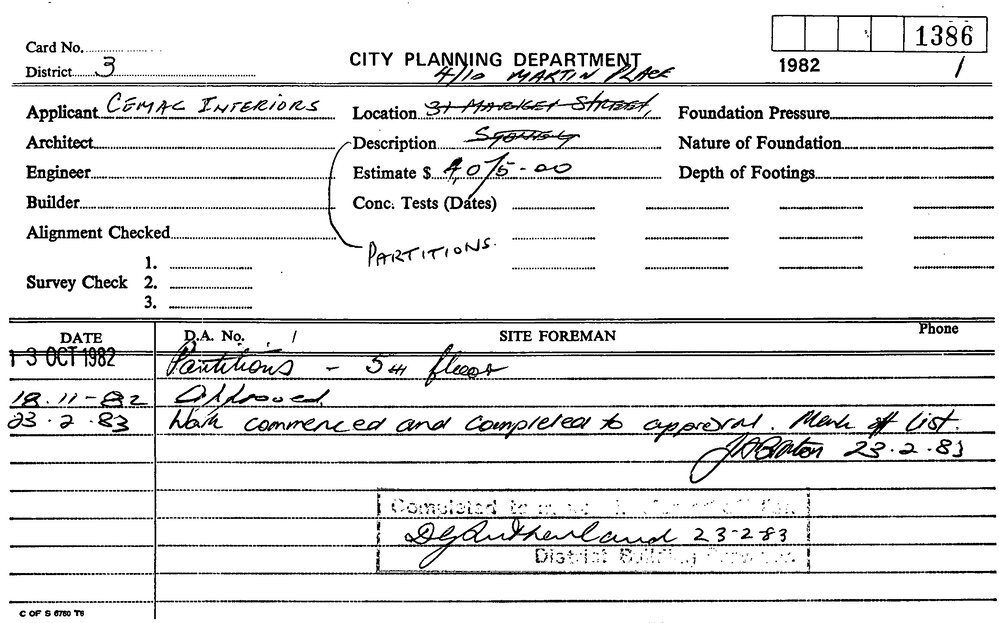 1386
Card No.
CITY PLANNING DEPARTMENT
1982
1
District 3
4/10 MARTIN PLACE
Applicant CEMAC INTERIORS
Location 31 MARKET STREET,
Foundation Pressure
Architect
Description SYDNEY
Nature of Foundation
Engineer
Estimate $ 4,015-00
Depth of Footings
Builder
Conc. Tests (Dates)
Alignment Checked
PARTITIONS.
1.
Survey Check 2.
3.
DATE
D.A. No.
SITE FOREMAN
Phone
13 OCT 1982
Partitions - 5TH floor
18.11-82
Approved.
23.2.83
Work commenced and completed to approval. Mark off list.
23.2.83
Completed to
23-2-83
District Building
C OF S 6760 T6